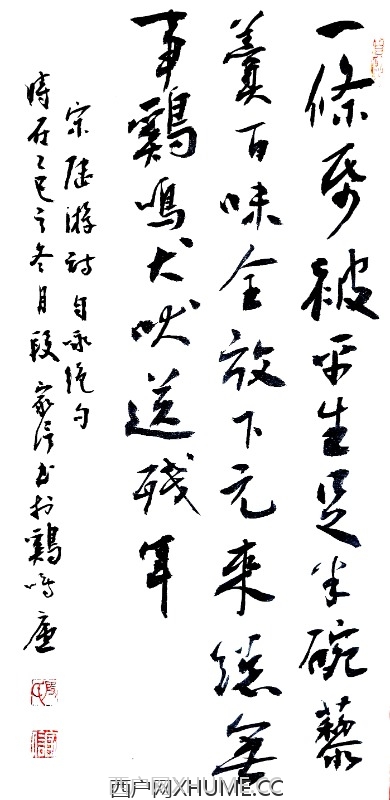 一條帋被平生足半碗藜
羹百味全放下元來總無
事鷄鳴犬吠送殘年
宋陸游詩自詠絕句
時在乙巳之冬月段家信书於鷄鳴廬
西户网XHUME.CC